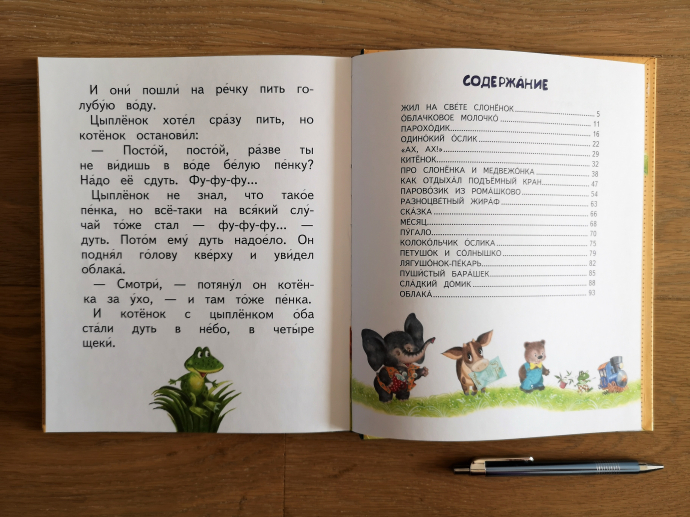 И они́ пошли́ на ре́чку пить го-
лубу́ю во́ду.
Цыплёнок хоте́л сра́зу пить, но
котёнок останови́л:
— Посто́й, посто́й, ра́зве ты
не ви́дишь в воде́ бе́лую пе́нку?
На́до её сдуть. Фу-фу-фу...
Цыплёнок не знал, что тако́е
пе́нка, но всё-таки на вся́кий слу-
чай то́же стал — фу-фу-фу... —
дуть. Пото́м ему́ дуть надое́ло. Он
по́днял го́лову кве́рху и уви́дел
облака́.
— Смотри́, — потяну́л он котён-
ка за у́хо, — и там то́же пе́нка.
И котёнок с цыплёнком о́ба
ста́ли дуть в не́бо, в четы́ре
щеки́.
СОДЕРЖА́НИЕ
ЖИЛ НА СВЕ́ТЕ СЛОНЁНОК 5
О́БЛАЧКОВОЕ МОЛОЧКО́ 11
ПАРОХО́ДИК 16
ОДИНО́КИЙ О́СЛИК 22
«АХ, АХ!» 29
КИТЁНОК 32
ПРО СЛОНЁНКА И МЕДВЕЖО́НКА 38
КАК ОТДЫХА́Л ПОДЪЁМНЫЙ КРАН 47
ПАРОВО́ЗИК ИЗ РОМАШКОВО 54
РАЗНОЦВЕ́ТНЫЙ ЖИРА́Ф 63
СКА́ЗКА 66
МЕ́СЯЦ 68
ПУ́ГАЛО 70
КОЛОКО́ЛЬЧИК О́СЛИКА 75
ПЕТУШО́К И СО́ЛНЫШКО 79
ЛЯГУШО́НОК-ПЕ́КАРЬ 82
ПУШИ́СТЫЙ БАРА́ШЕК 85
СЛА́ДКИЙ ДО́МИК 88
ОБЛАКА́ 93